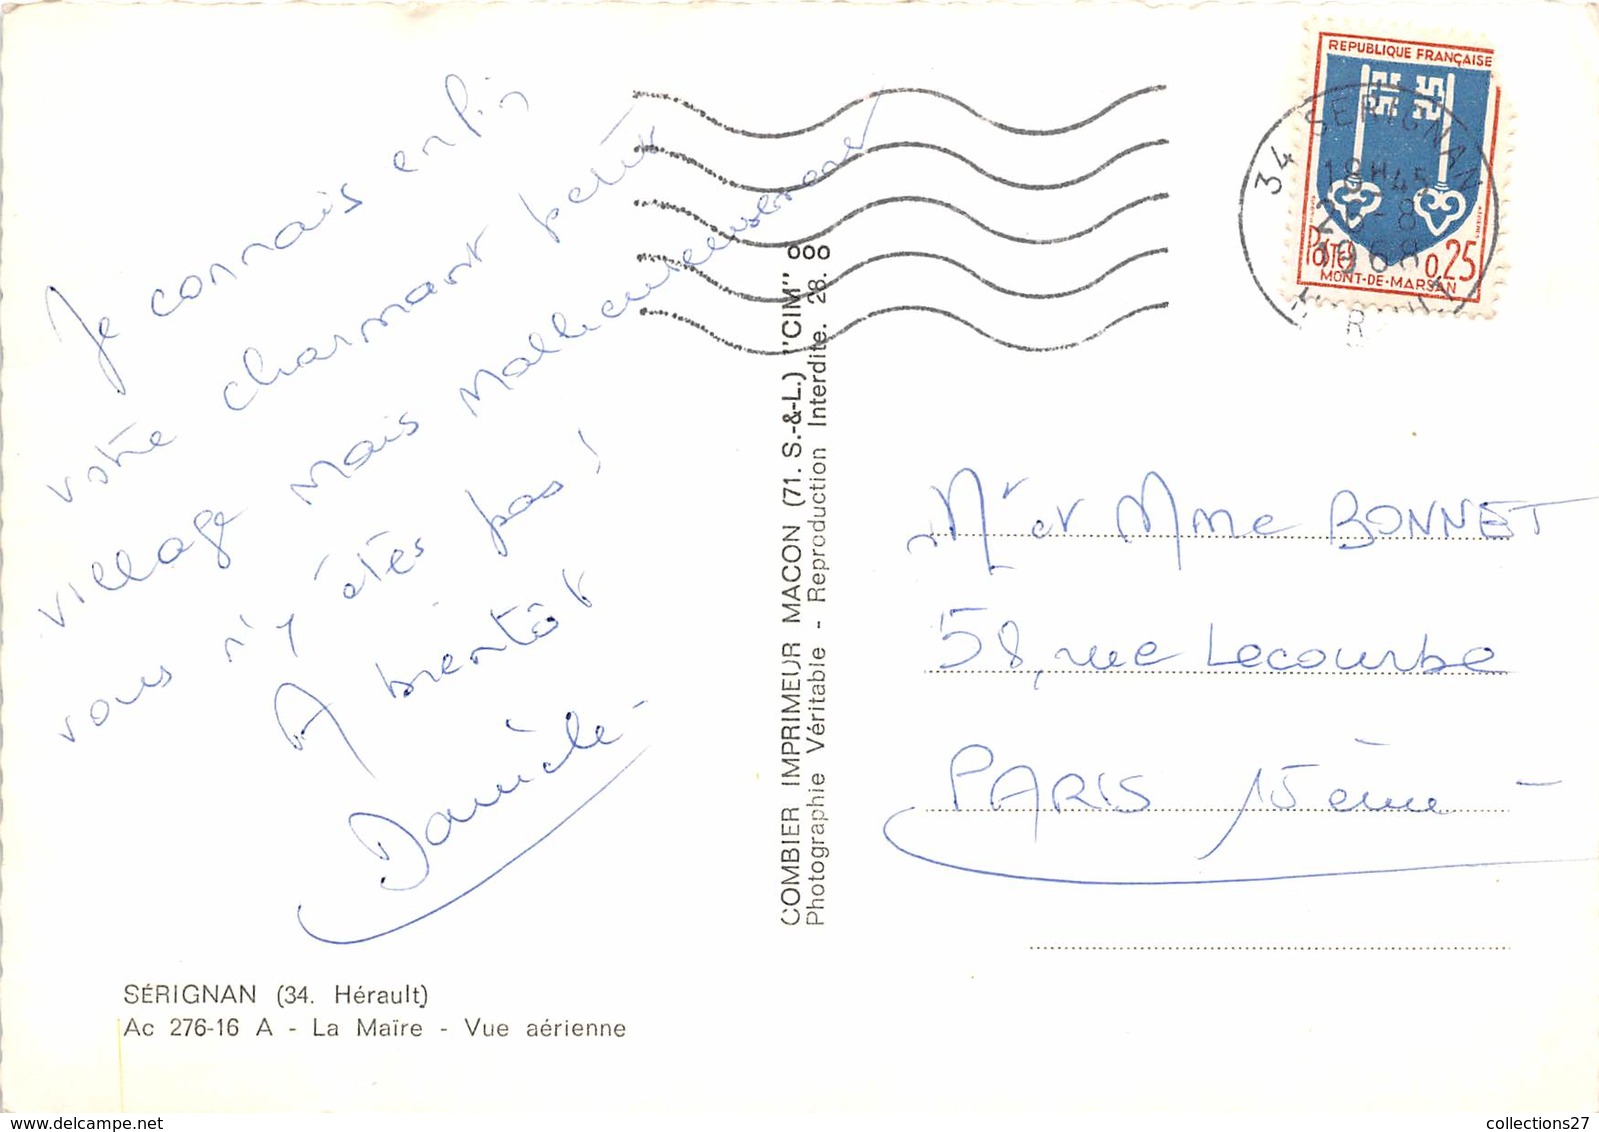 Je connais enfin
votre charmant petit
village mais malheureusement
vous n'y étés pas !
A bientôt
Danièle -
SÉRIGNAN (34. Hérault)
Ac 276-16 A - La Maïre - Vue aérienne
COMBIER IMPRIMEUR MACON (71. S.-&-L.) "CIM"
Photographie Véritable - Reproduction Interdite. 28.
REPUBLIQUE FRANÇAISE
POSTES 0,25
MONT-DE-MARSAN
34 SERIGNAN
18H45
-8
1968
Mr et Mme BONNET
58, rue Lecourbe
PARIS 15ème -
collections27